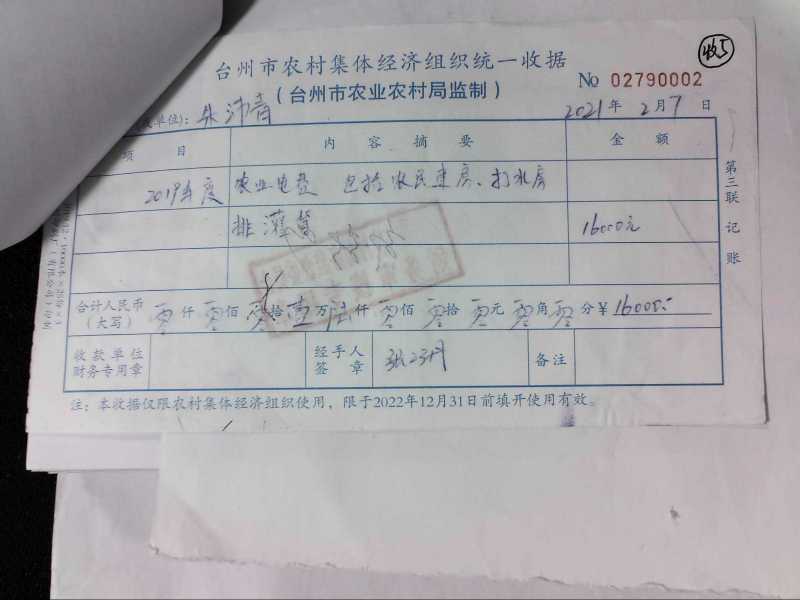 收5
台州市农村集体经济组织统一收据
(台州市农业农村局监制)
№ 02790002
单位): 朱沛青
2021年 2月 7日
项目 内容摘要 金额
2019年度 农业电费 包括农民建房、打水房
排灌等 16000元
合计人民币(大写) 零仟零佰零拾壹万陆仟零佰零拾零元零角零分 ¥16000.-
收款单位财务专用章 经手人签章 备注
注:本收据仅限农村集体经济组织使用,限于2022年12月31日前填开使用有效。
第三联 记账